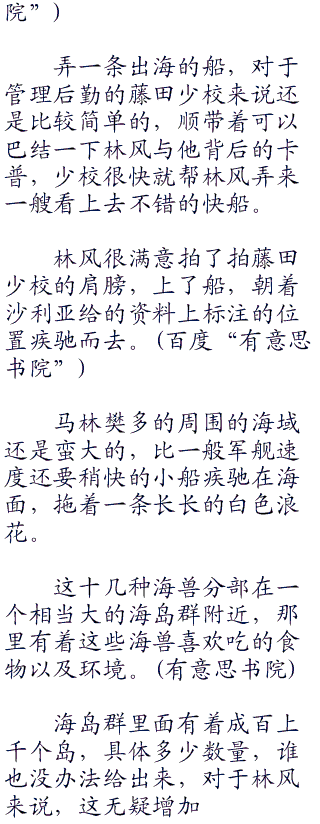 院”)
弄一条出海的船，对于
管理后勤的藤田少校来说还
是比较简单的，顺带着可以
巴结一下林风与他背后的卡
普，少校很快就帮林风弄来
一艘看上去不错的快船。
林风很满意拍了拍藤田
少校的肩膀，上了船，朝着
沙利亚给的资料上标注的位
置疾驰而去。(百度“有意思
书院”)
马林樊多的周围的海域
还是蛮大的，比一般军舰速
度还要稍快的小船疾驰在海
面，拖着一条长长的白色浪
花。
这十几种海兽分部在一
个相当大的海岛群附近，那
里有着这些海兽喜欢吃的食
物以及环境。(有意思书院)
海岛群里面有着成百上
千个岛，具体多少数量，谁
也没办法给出来，对于林风
来说，这无疑增加